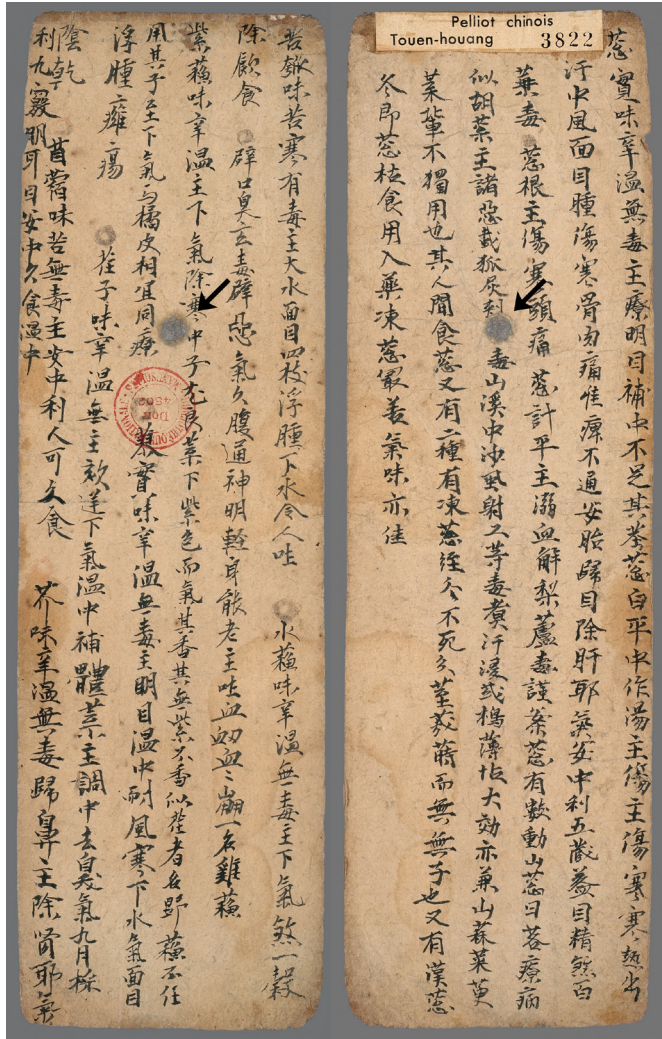 Pelliot chinois
Touen-houang 3822
葱實味辛温無毒主療明目補中不足其莖葱白平中作湯主傷主傷寒寒熱出
汗中風面目腫傷寒骨肉痛喉痺不通安胎歸目除肝耶氣安中利五藏益目精煞百
藥毒 葱根主傷寒頭痛 葱汁平主溺血解梨蘆毒謹案葱有數動山葱曰茖療病
似胡葱主諸惡載狐尿刺毒山溪中沙虱射工等毒煮汁浸或檮薄怗大効亦兼山蒜菜萸
菜輩不獨用也其人間食葱又有二種有凍葱經冬不死分莖栽蒔而無無子也又有漢葱
冬即葱枯食用入藥凍葱最善氣味亦佳
苦瓠味苦寒有毒主大水面目四枝浮腫下水令人吐 水蘇味辛温無毒主下氣煞一穀
除飲食 辟口臭去毒辟惡氣久腹通神明輕身能老主吐血衂血二崩一名雞蘇
紫蘇味辛温主下氣除寒中子尤良葉下紫色而氣其香其無紫不香似荏者名野蘇不任
用其子主下氣与橘皮相宜同療 蓼實味辛温無毒主明目温中耐風寒下水氣面目
浮腫癰瘍 荏子味辛温無主欬逆下氣温中補體葉主調中去臭氣九月採
陰乾 苜蓿味苦無毒主安中利人可久食 芥味辛温無毒歸鼻主除腎耶氣
利九竅明耳目安中久食温中